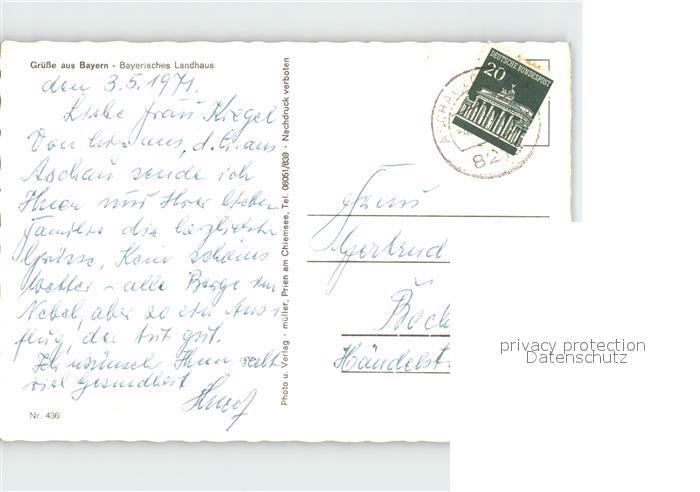 Grüße aus Bayern - Bayerisches Landhaus
den 3.5.1971.
Liebe Frau Kregel
Von hier aus, d. h. aus
Aschau sende ich
Ihnen und Ihrer lieben
Familie die herzlichsten
Grüsse, Kein schönes
Wetter - alle Berge im
Nebel, aber so ein Aus
flug, der tut gut.
Ich wünsch Ihnen recht
viel Gesundheit
Nr. 436
Photo u. Verlag - müller, Prien am Chiemsee, Tel. 08051/839 - Nachdruck verboten
DEUTSCHE BUNDESPOST
20
ASCHAU
821
Frau
Gertrud
Boch
Händelst
privacy protection
Datenschutz